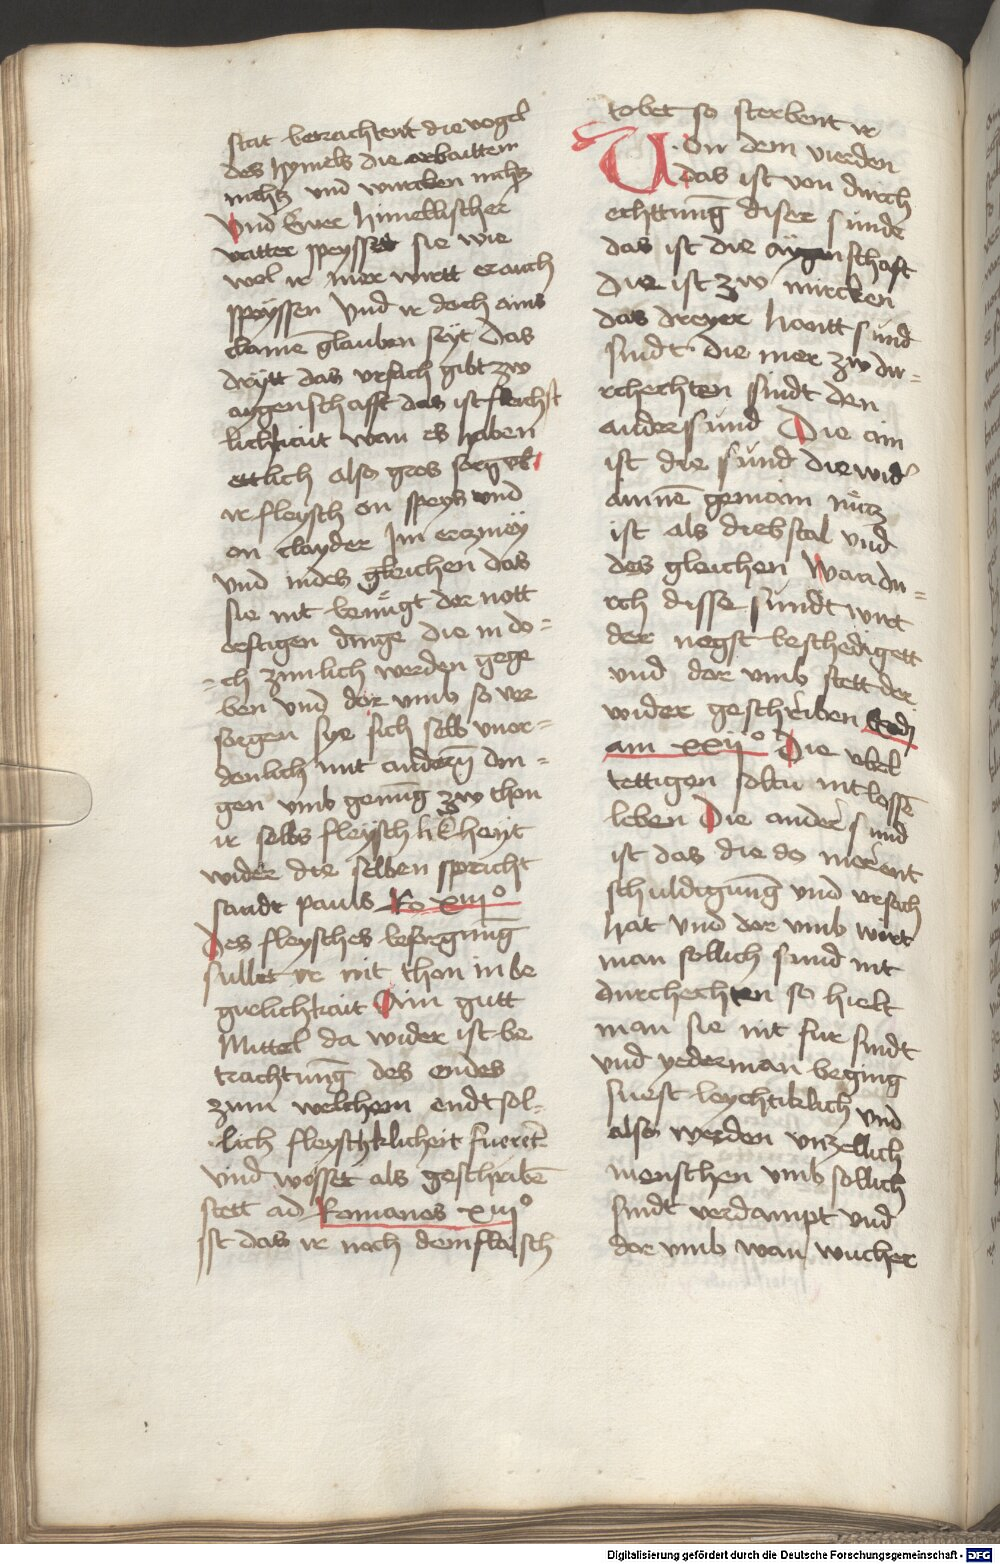 stat betrachtent die vogel
des hymels die arbaitten
nichtz und wurcken nichtz
Und Ewer himellischer
vatter speysset sie wie
wel ir mer wirtt er auch
speyssen Und ir doch ains
claine glauben seyt Das
drytt das ursach gibt zw
aygenschafft das ist fleisch
lichkait wan es haben
ettlich also gros sorg ub
ir fleysch on speys und
on clayder Im erczney
und in des gleichen das
sie nit benügt der nott
orftigen dinge die in do=
=ch zimlich werden gege
ben und dor umb so ver
sorgen sye sich selb unor=
denlich mit andern din=
gen umb genung zw thon
ir selbs fleyschlikheyt
wider die selben spricht
sandt pauls Ro xiii°
Des fleysches besorgung
sullet ir nit thon in be
girlichkait Ain gutt
Mittel da wider ist be
trachtung des endes
zum welchem endt sol-
lich fleyschklicheit fueret
und weysset als geschriben
stett ad Romanos xiii°
ist das ir noch dem flaisch
tobet so sterbent ir
Von dem vierden
das ist von durch
echttung diser sunde
das ist die aygenschaft
Die ist zw mircken
das dreyer hantt sund
sindt die mer zw du=
rchechten sindt den
ander sund Die ain
ist die sund die wider
ainen gemain nucz
ist als diebstal und
des gleichen Wan du=
rch disse sundt wirt
der negst beschedigett
und dor umb stett der
wider geschriben Exodi
am xxii° Die ubel
tettigen soltu nit lossen
leben Die ander sund
ist das die do merent
schuldigung und ursach
hat und dor umb wirt
man sollich sund nit
durchechten so hielt
man sie nit fur sindt
und yederman beging
sust leychtiklich und
also werden unzellich
menschen umb sollich
sindt verdampt und
dor umb wan wucher
Digitalisierung gefördert durch die Deutsche Forschungsgemeinschaft - DFG